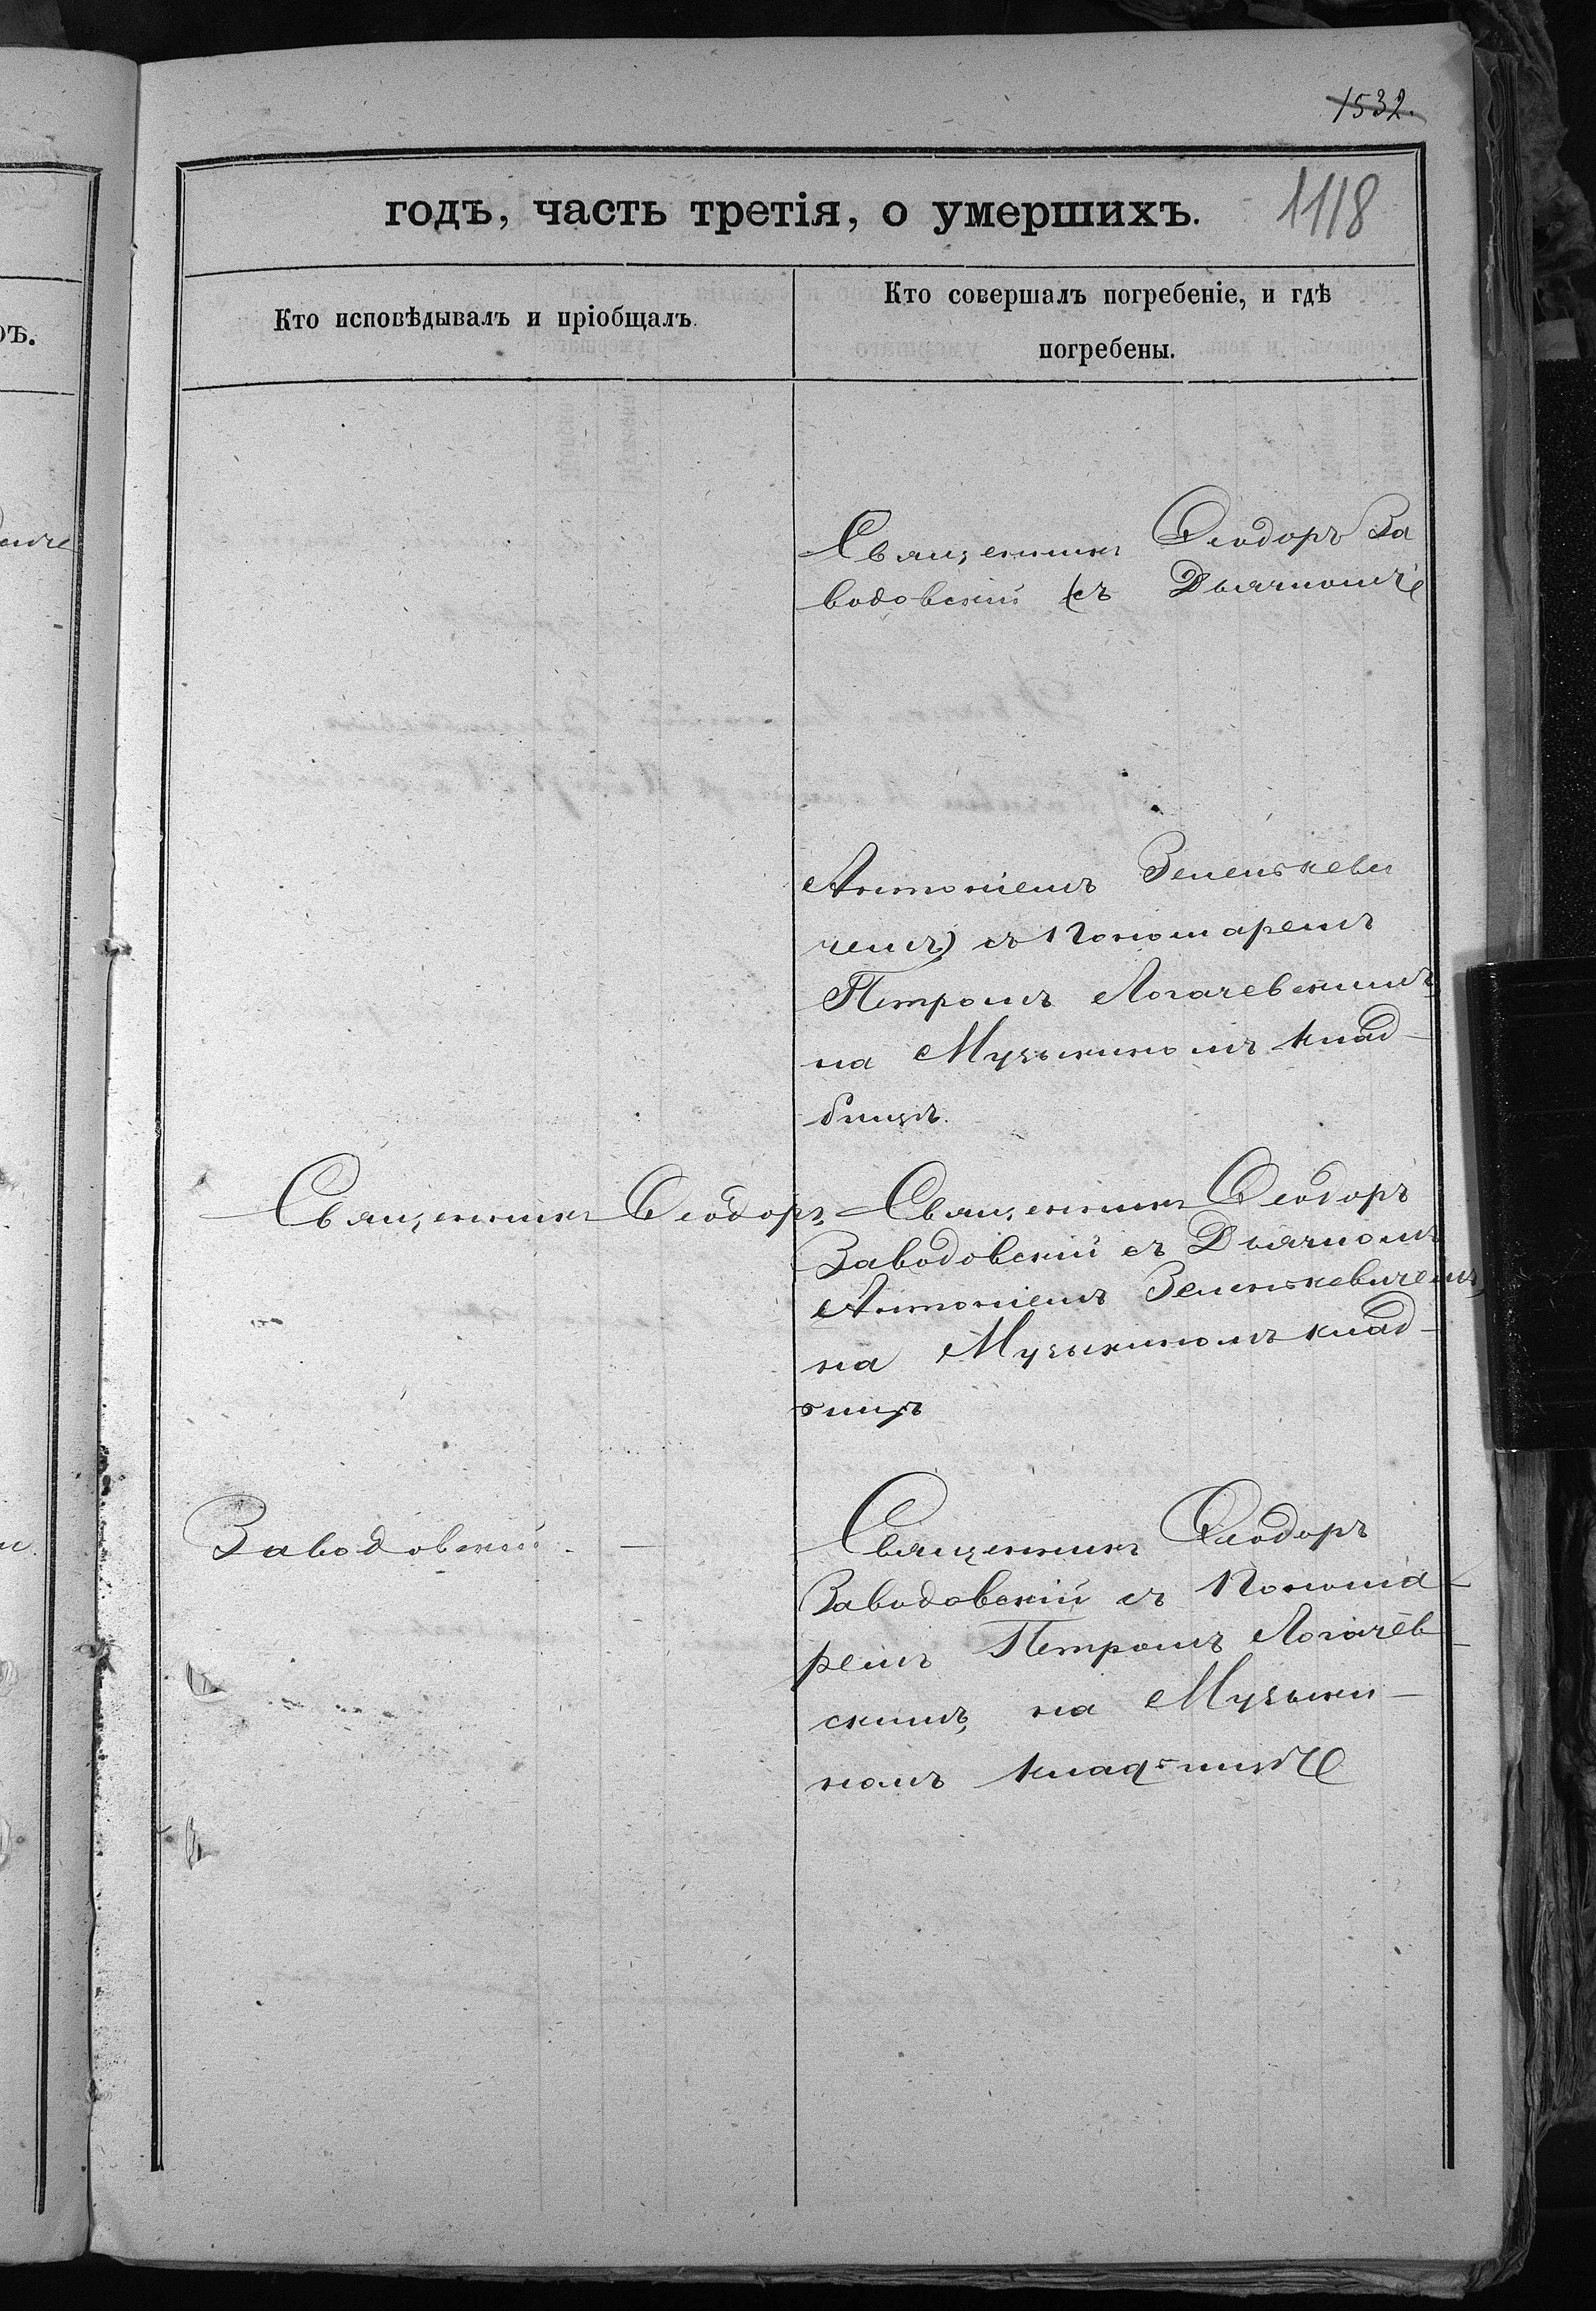 1532.
годъ, часть третія, о умершихъ. 1118
Кто исповѣдывалъ и пріобщалъ.
Кто совершалъ погребеніе, и гдѣ
погребены.
Священникъ Ѳеодоръ За
водовскій (съ Дьячкомъ
Антоніемъ Зеленкеви
чемъ) съ Пономаремъ
Петромъ Логачевскимъ,
на Музыкиномъ клад-
бищѣ.
Священникъ Ѳеодоръ
Священникъ Ѳеодоръ
Заводовскій съ Дьячкомъ
Антоніемъ Зеленкевичемъ,
на Музыкиномъ клад-
бищѣ
Заводовскій. —
Священникъ Ѳеодоръ
Заводовскій съ Понома-
ремъ Петромъ Логачев-
скимъ, на Музыки-
номъ кладбищѣ